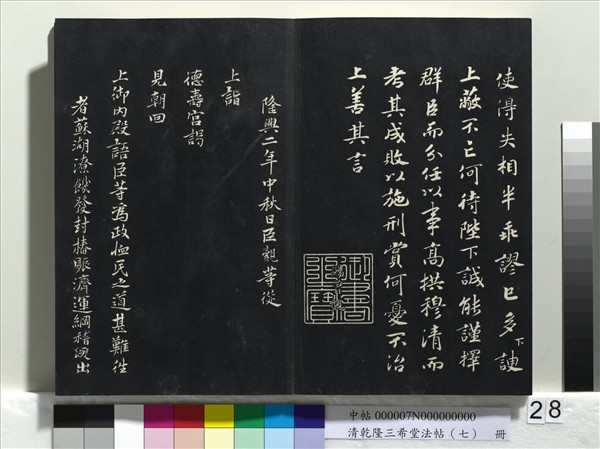 使得失相半乖謬已多下諛
上蔽不亡何待陛下誠能謹擇
群臣而分任以事高拱穆清而
考其成敗以施刑賞何憂不治
上善其言
隆興二年中秋日臣觀等從
上詣
德壽宮謁
見朝回
上御內殿語臣等為政恤民之道甚難往
者蘇湖潦饑發封樁賑濟運綱稽
出
中帖 000007N000000000
清乾隆三希堂法帖(七) 冊
28